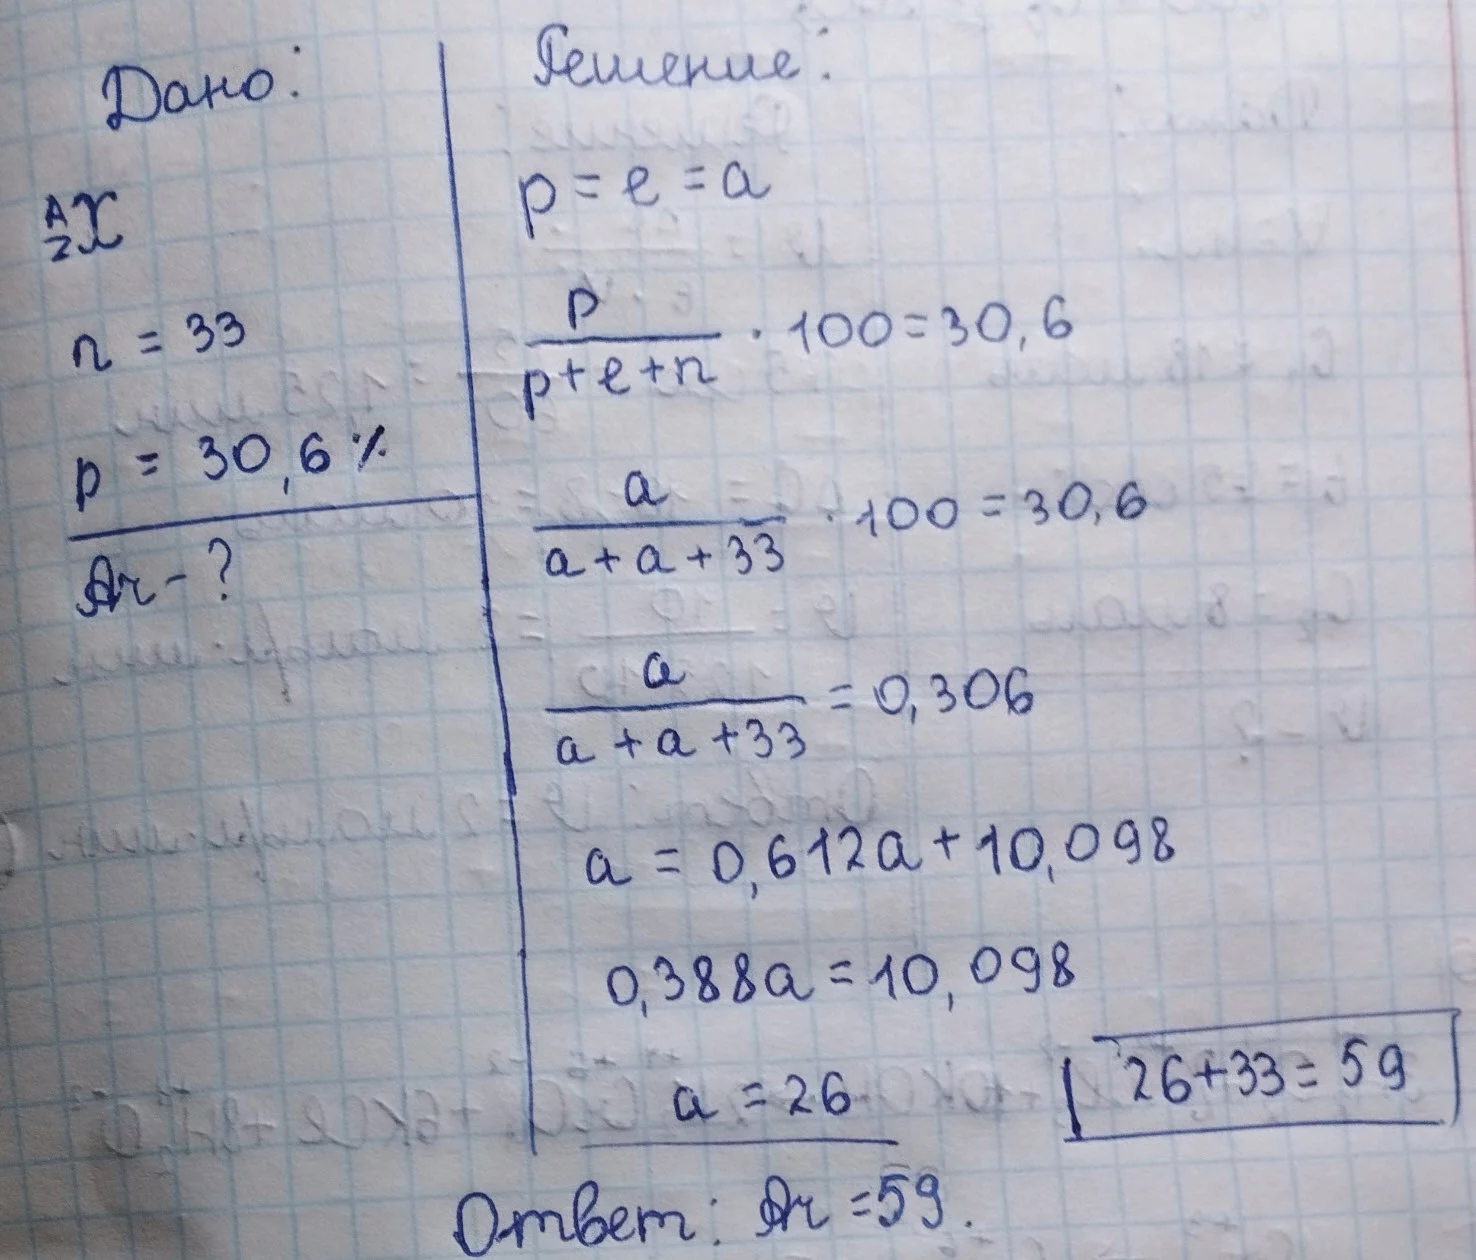 Дано:
A
Z X
n = 33
p = 30,6 %
Ar - ?
Решение:
p = e = a
p
p + e + n · 100 = 30,6
a
a + a + 33 · 100 = 30,6
a
a + a + 33 = 0,306
a = 0,612a + 10,098
0,388a = 10,098
a = 26
26 + 33 = 59
Ответ: Ar = 59.